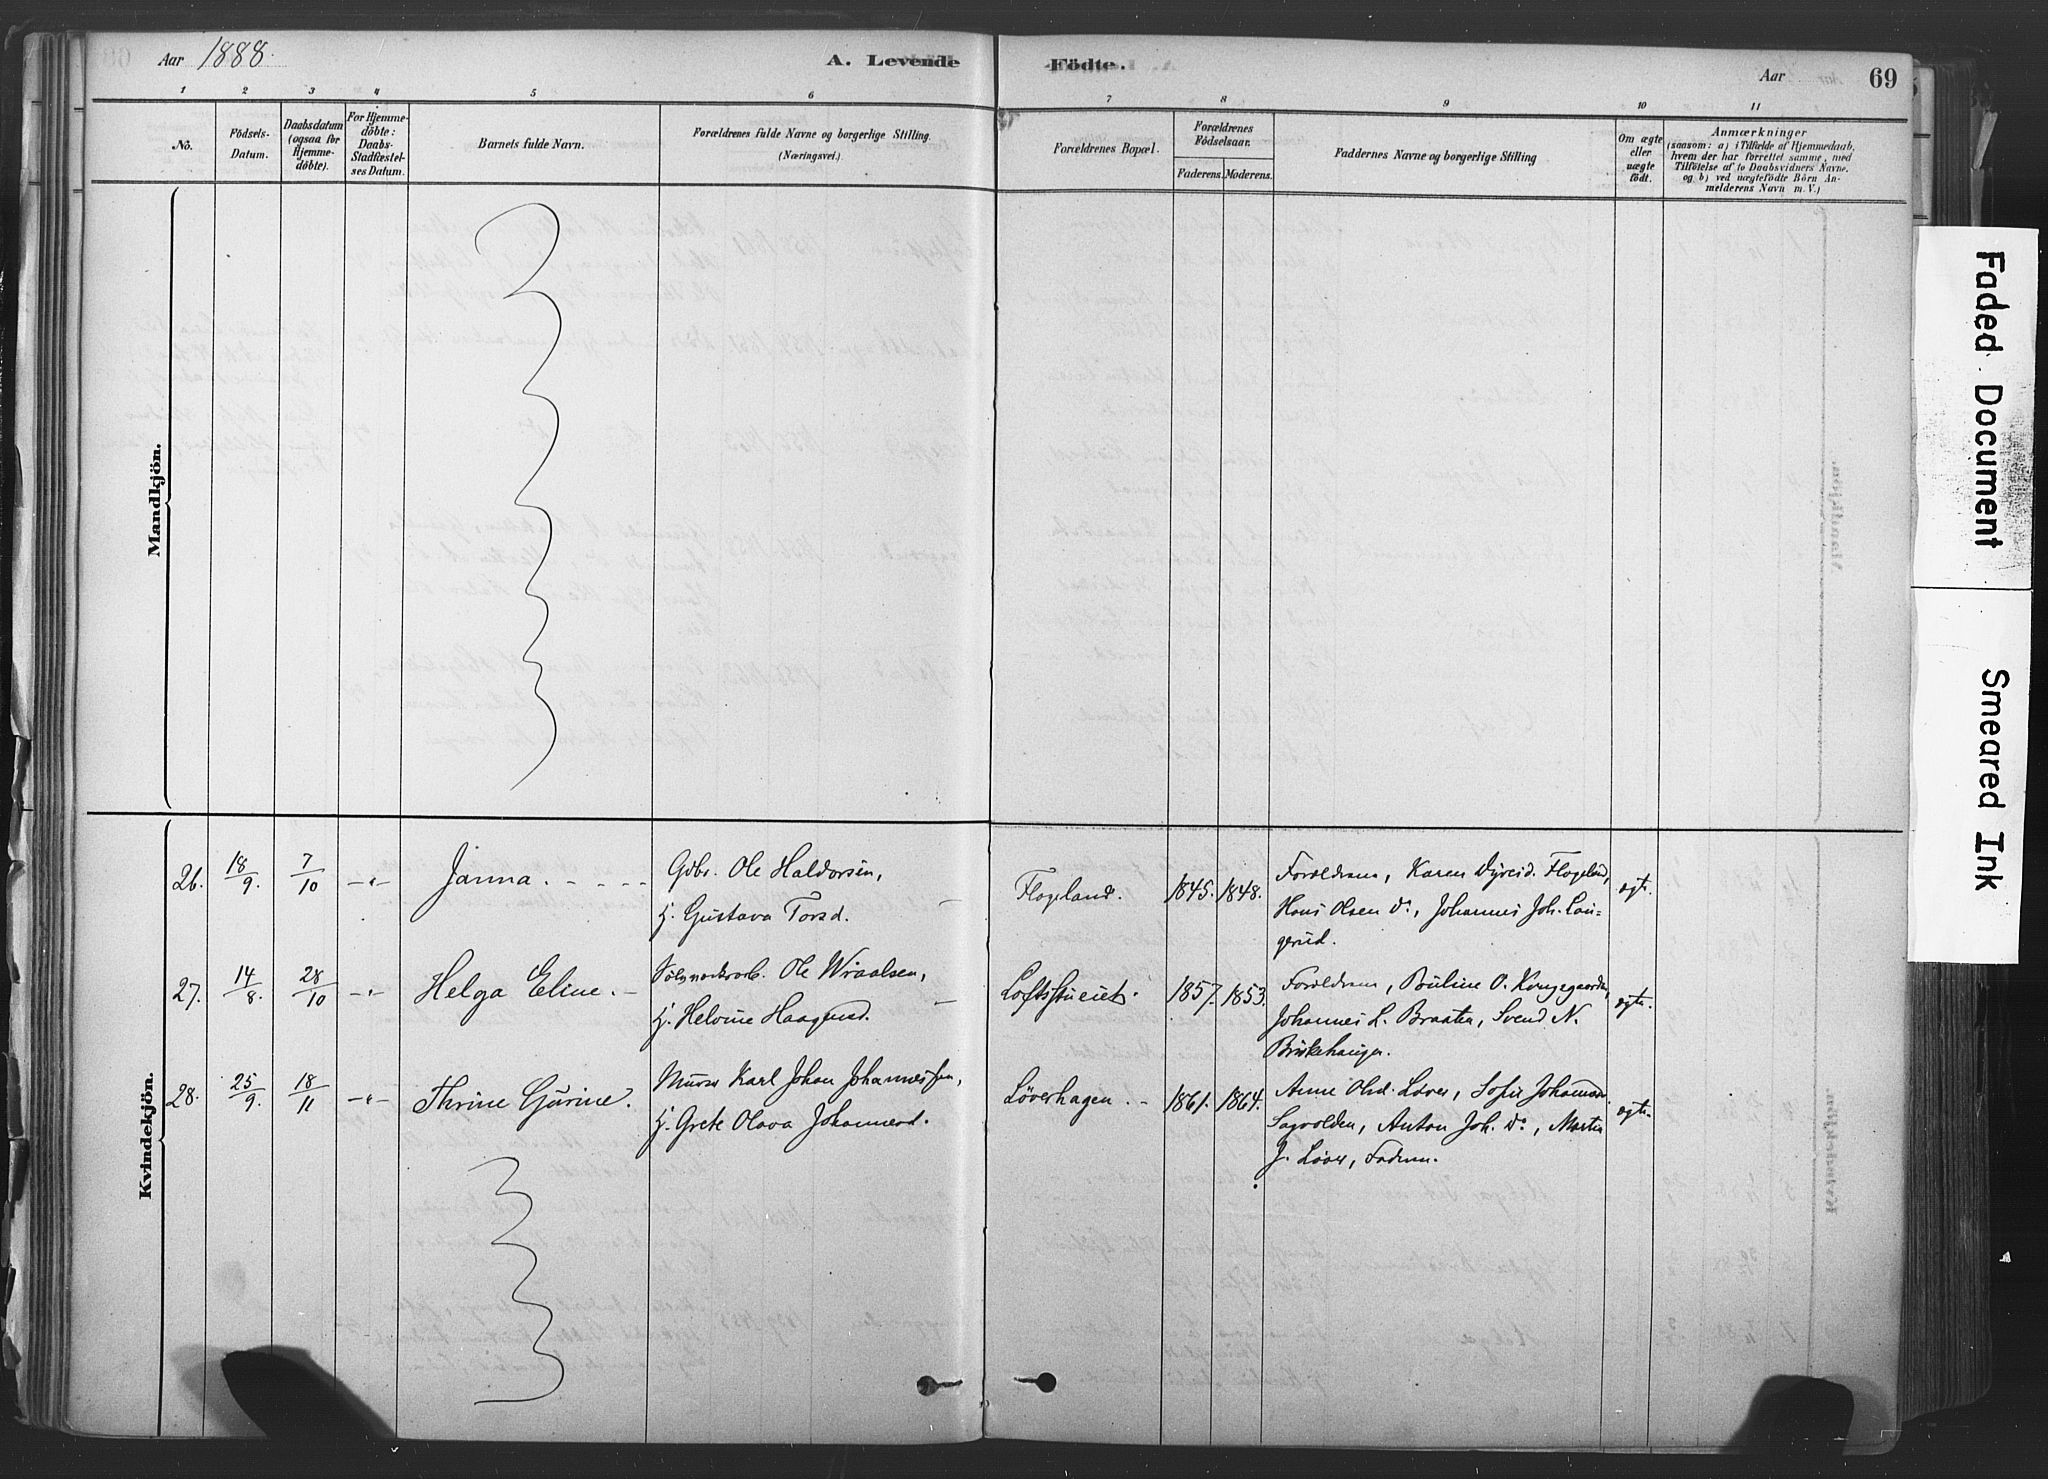 Aar 1888.
A. Levende
Födte.
Aar
69
1 2 3 4 5 6 7 8 9 10 11
No.
Födsels-
Datum.
Daabsdatum
(ogsaa for
Hjemme-
döbte).
For Hjemme-
döbte:
Daabs-
Stadfæstel-
ses Datum.
Barnets fulde Navn.
Forældrenes fulde Navne og borgerlige Stilling
(Næringsvei.)
Forældrenes Bopæl.
Forældrenes
Födselsaar.
Faderens. Moderens.
Faddernes Navne og borgerlige Stilling
Om ægte
eller
uægte
födt.
Anmærkninger
(saasom: a) i Tilfælde af Hjemmedaab,
hvem der har forrettet samme, med
Tilföielse af to Daabsvidners Navne.
og b) ved uægtefödte Börn An-
melderens Navn m. V.)
Mandkjön.
Kvindekjön.
26. 18/9. 7/10 -"- Janna. Gdbr. Ole Haldorsen, Flogeland. 1845. 1848. Forældrene, Karen Flogeland, ægte.
Hj. Gustava Torsd. Hans Olsen do, Johannes Joh. Lan-
gerud.
27. 14/8. 28/10 -"- Helga Eline. Ole Wraalsen, Loftsstueiet. 1857. 1853. Forældrene, Pauline O. Kongsgaarden, ægte.
Hj. Helvine Haagensd. Johannes L. Braaten, Svend N.
Briskehaugen.
28. 25/9. 18/11 -"- Thrine Gurine. Murer Karl Johan Johannessen, Löverhagen. 1861. 1864. Anne Olsd. Löver, Sofie Johannesd. ægte.
Hj. Grete Olava Johannesd. Sagvolden, Anton Joh. do, Martin
J. Löver, Faderen.
Faded Document
Smeared Ink